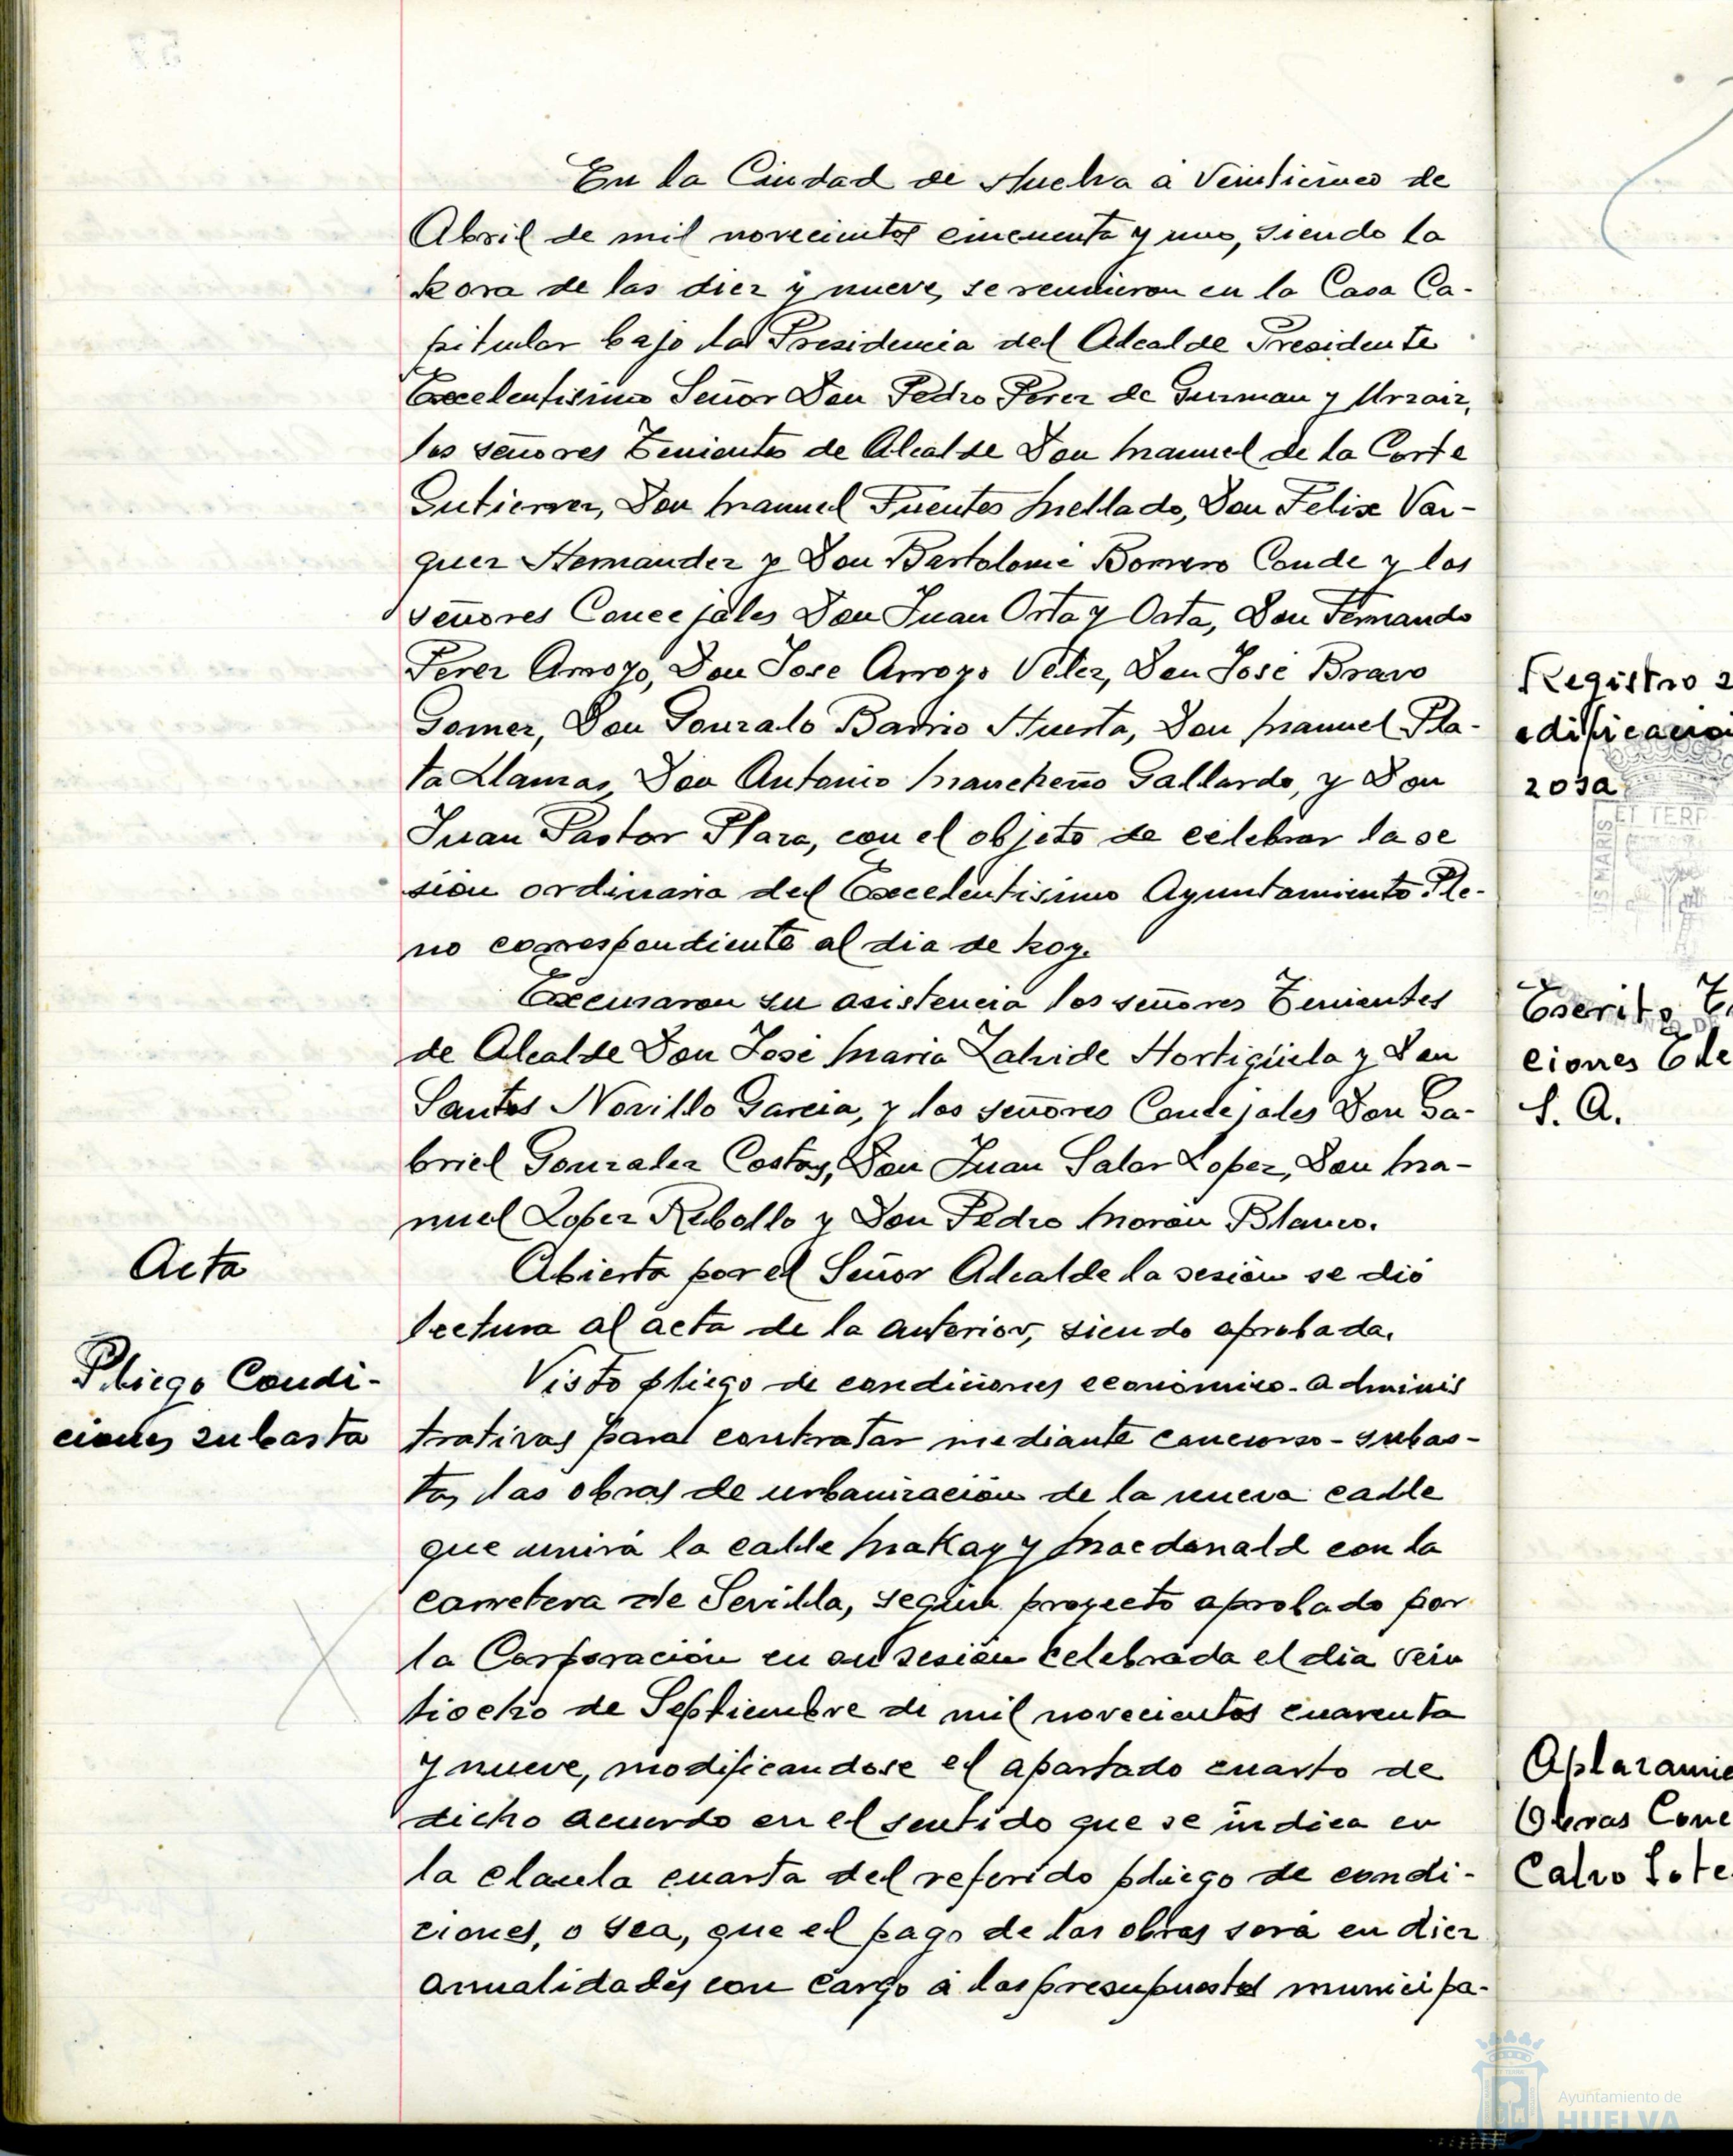 En la Ciudad de Huelva a veinticinco de
Abril de mil novecientos cincuenta y uno, siendo la
hora de las diez y nueve, se reunieron en la Casa Ca-
pitular bajo la Presidencia del Alcalde Presidente
Excelentisimo Señor Don Pedro Perez de Guzman y Urzaiz,
los señores Tenientes de Alcalde Don Manuel de la Corte
Gutierrez, Don Manuel Fuentes Mellado, Don Felix Vaz-
quez Hernandez y Don Bartolomé Borrero Conde y los
señores Concejales Don Juan Orta y Orta, Don Fernando
Perez Arroyo, Don Jose Arroyo Velez, Don José Bravo
Gomez, Don Gonzalo Barrio Huesta, Don Manuel Pla-
ta Llamas, Don Antonio Mancheño Gallardo, y Don
Juan Pastor Plaza, con el objeto de celebrar la se
sión ordinaria del Excelentisimo Ayuntamiento Ple-
no correspondiente al dia de hoy.
Excusaron su asistencia los señores Tenientes
de Alcalde Don José Maria Zalvide Hortigüela y Don
Santos Novillo Garcia, y los señores Concejales Don Ga-
briel Gonzalez Costoy, Don Juan Salor Lopez, Don Ma-
nuel Lopez Rebollo y Don Pedro Morón Blanco.
Acta
Abierta por el Señor Alcalde la sesión se dió
lectura al acta de la anterior, siendo aprobada.
Pliego Condi-
ciones subasta
Visto pliego de condiciones economico-adminis
trativas para contratar mediante concurso-subas-
ta, las obras de urbanización de la nueva calle
que unirá la calle MaKay y Macdonald con la
carretera de Sevilla, según proyecto aprobado por
la Corporación en su sesión celebrada el dia vein
tiocho de Septiembre de mil novecientos cuarenta
y nueve, modificandose el apartado cuarto de
dicho acuerdo en el sentido que se indica en
la claula cuarta del referido pliego de condi-
ciones, o sea, que el pago de las obras será en diez
anualidades con cargo á los presupuestos municipa-
Registro
edificacio
zosa
Escrito
ciones Ele
S. A.
Aplazamie
Obras Conc
Calvo Sote
Ayuntamiento de
HUELVA